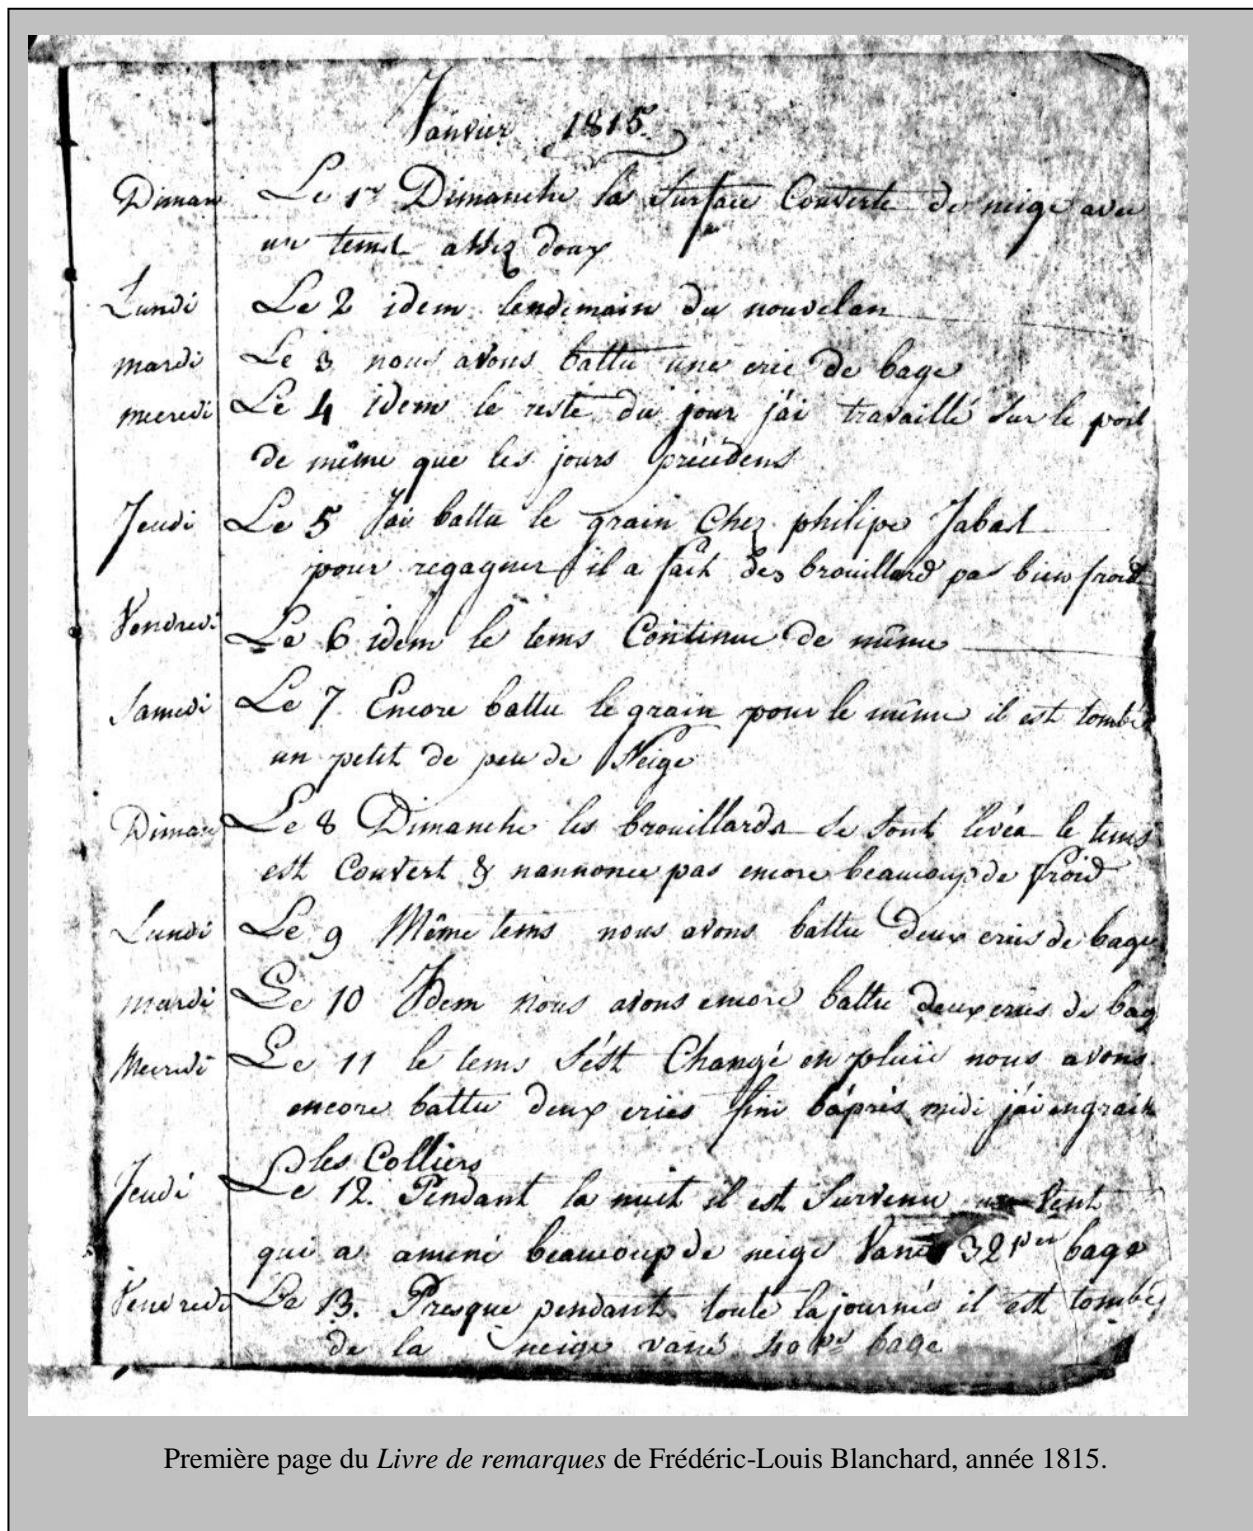 Janvier 1815.
Diman Le 1er Dimanche la surface Couverte de neige avec
un tems assez doux
Lundi Le 2 idem lendemain du nouvelan
mardi Le 3 nous avons battu une eriée de bage
mecredi Le 4 idem le reste du jour j'ai travaillé sur le poil
de même que les jours précédens
Jeudi Le 5 J'ai battu le grain Chez philipe
pour regagner il a fait des brouillard pas bien froid
Vendredi Le 6 idem le tems Continue de même
Samedi Le 7 Encore battu le grain pour le même il est tombé
un petit de peu de Neige
Diman Le 8 Dimanche les brouillards se sont levéa le tems
est Couvert & nannonce pas encore beaucoup de froid
Lundi Le 9 Même tems nous avons battu deux eriés de bage
mardi Le 10 Idem nous avons encore battu deux eriés de bag
Mecredi Le 11 le tems s'ést Changé en pluie nous avons
encore battu deux eriés fini l'après midi j'ai engrain
les Colliers
Jeudi Le 12. Pendant la nuit il est Survenu un Vent
qui a amené beaucoup de neige Vané 32 per bage
Vendredi Le 13. Presque pendant toute la journée il est tombé
de la neige vané 40 per bage
Première page du Livre de remarques de Frédéric-Louis Blanchard, année 1815.